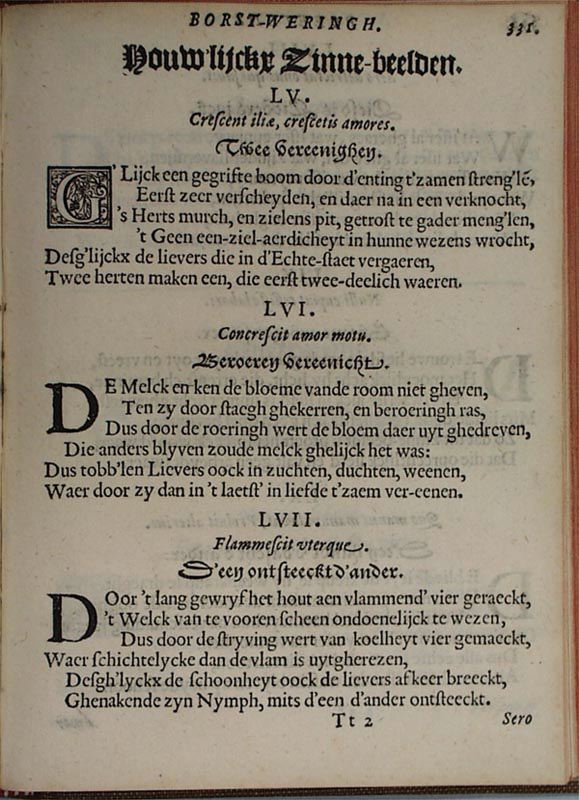 BORST-WERINGH.
331.
Houw'lijckx Zinne-beelden.
LV.
Creſcent iliæ, creſcetis amores.
Twee Vereenighen.
G'Lijck een gegrifte boom door d'enting t'zamen ſtreng'lē,
Eerſt zeer verſcheyden, en daer na in een verknocht,
's Herts murch, en zielens pit, getroſt te gader meng'len,
't Geen een-ziel-aerdicheyt in hunne wezens wrocht,
Deſg'lijckx de lievers die in d'Echte-ſtaet vergaeren,
Twee herten maken een, die eerſt twee-deelich waeren.
LVI.
Concreſcit amor motu.
Beroeren Vereenicht.
DE Melck en ken de bloeme vande room niet gheven,
Ten zy door ſtaegh ghekerren, en beroeringh ras,
Dus door de roeringh wert de bloem daer uyt ghedreven,
Die anders blyven zoude melck ghelijck het was:
Dus tobb'len Lievers oock in zuchten, duchten, weenen,
Waer door zy dan in 't laetſt' in liefde t'zaem ver-eenen.
LVII.
Flammeſcit vterque.
D'een ontſteeckt d'ander.
DOor 't lang gewryf het hout aen vlammend' vier geraeckt,
't Welck van te vooren ſcheen ondoenelijck te wezen,
Dus door de ſtryving wert van koelheyt vier gemaeckt,
Waer ſchichtelycke dan de vlam is uytgherezen,
Deſgh'lyckx de ſchoonheyt oock de lievers afkeer breeckt,
Ghenakende zyn Nymph, mits d'een d'ander ontſteeckt.
Tt 2
Sero